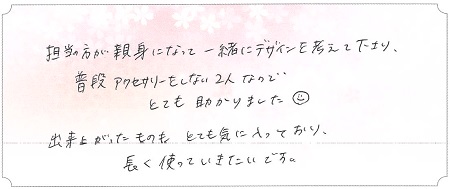 担当の方が親身になって一緒にデザインを考えて下さり、
普段アクセサリーをしない2人なので
とても助かりました☺
出来上がったものも とても気に入っており、
長く使っていきたいです。